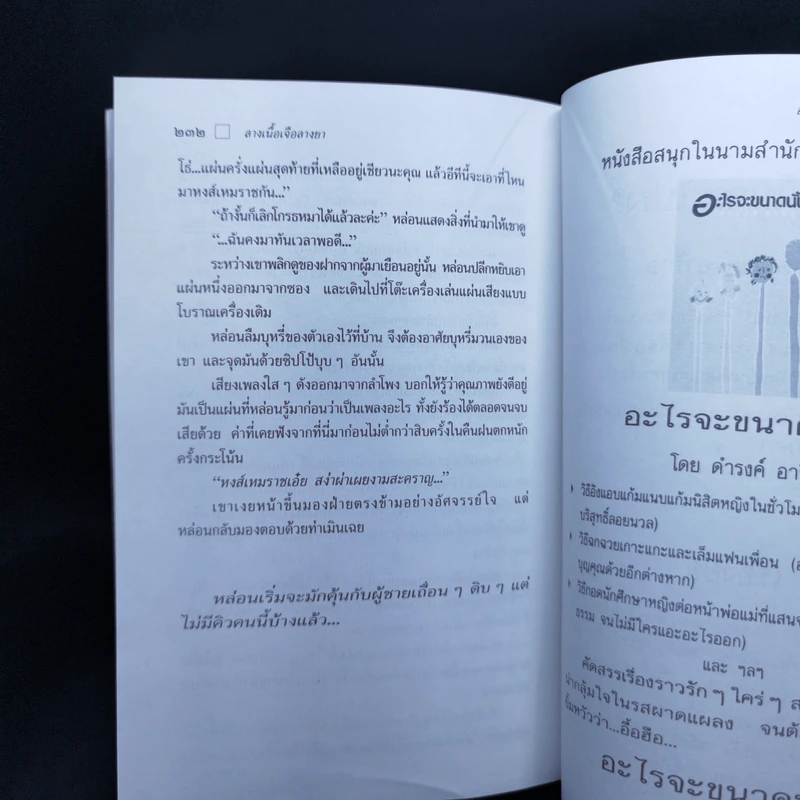 ๒๓๒ ลางเนื้อเจือลางยา
โธ่...แผ่นครั่งแผ่นสุดท้ายที่เหลืออยู่เชียวนะคุณ แล้วอีทีนี้จะเอาที่ไหน
มาหงส์เหมราชกัน...”
“ถ้างั้นก็เลิกโกรธหมาได้แล้วละค่ะ” หล่อนแสดงสิ่งที่นำมาให้เขาดู
“...ฉันคงมาทันเวลาพอดี...”
ระหว่างเขาพลิกดูของฝากจากผู้มาเยือนอยู่นั้น หล่อนปลีกหยิบเอา
แผ่นหนึ่งออกมาจากซอง และเดินไปที่โต๊ะเครื่องเล่นแผ่นเสียงแบบ
โบราณเครื่องเดิม
หล่อนลืมบุหรี่ของตัวเองไว้ที่บ้าน จึงต้องอาศัยบุหรี่มวนเองของ
เขา และจุดมันด้วยซิปโป้บุบ ๆ อันนั้น
เสียงเพลงใส ๆ ดังออกมาจากลำโพง บอกให้รู้ว่าคุณภาพยังดีอยู่
มันเป็นแผ่นที่หล่อนรู้มาก่อนว่าเป็นเพลงอะไร ทั้งยังร้องได้ตลอดจนจบ
เสียด้วย ค่าที่เคยฟังจากที่นี่มาก่อนไม่ต่ำกว่าสิบครั้งในคืนฝนตกหนัก
ครั้งกระโน้น
“หงส์เหมราชเอ๋ย สง่าผ่าเผยงามสะคราญ...”
เขาเงยหน้าขึ้นมองฝ่ายตรงข้ามอย่างอัศจรรย์ใจ แต่
หล่อนกลับมองตอบด้วยท่าเมินเฉย
หล่อนเริ่มจะมักคุ้นกับผู้ชายเถื่อน ๆ ดิบ ๆ แต่
ไม่มีคิวคนนี้บ้างแล้ว...
หนังสือสนุกในนามสำนัก
อะไรจะขนาดนั้
อะไรจะขนาด
โดย ดำรงค์ อารี
วิธีอิงแอบแก้มแนบแก้มนิสิตหญิงในชั่วโม
บริสุทธิ์ลอยนวล)
วิธีฉกฉวยเกาะแกะและเล็มแฟนเพื่อน
บุญคุณด้วยอีกต่างหาก)
วิธีกอดนักศึกษาหญิงต่อหน้าพ่อแม่ที่แสน
ธรรม จนไม่มีใครแอะอะไรออก)
และ ฯลฯ
คัดสรรเรื่องราวรัก ๆ ใคร่ ๆ
น่ากลุ้มใจในรสผาดแผลง จนต้
ยิ้มหวัวว่า...อื้อฮือ...
อะไรจะขนาด